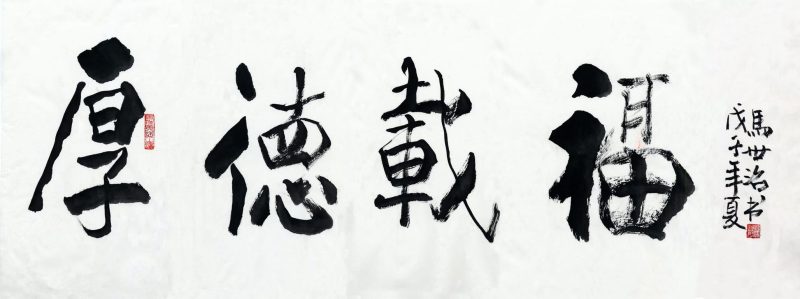 厚德載福
戊子年夏
馬世治书